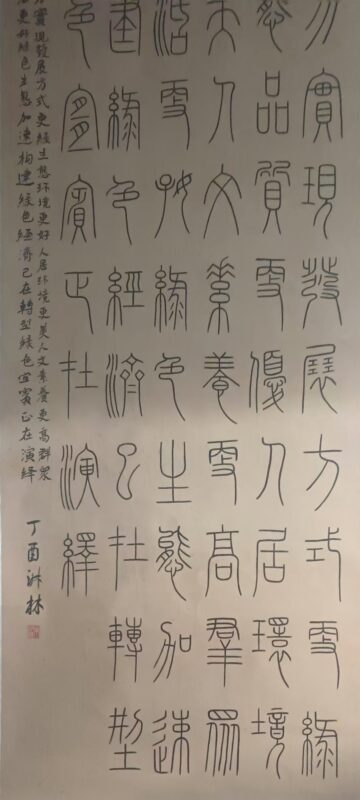 力實現發展方式更綠
態品質更優人居環境
美人文素養更高羣眾
活更好綠色生態加速
建綠色經濟已在轉型
色宜賓正在演繹
力實現發展方式更綠生態环境更好人居环境更美人文素養更高群眾
活更好綠色生態加速构建綠色經濟已在轉型綠色宜賓正在演繹
丁酉林